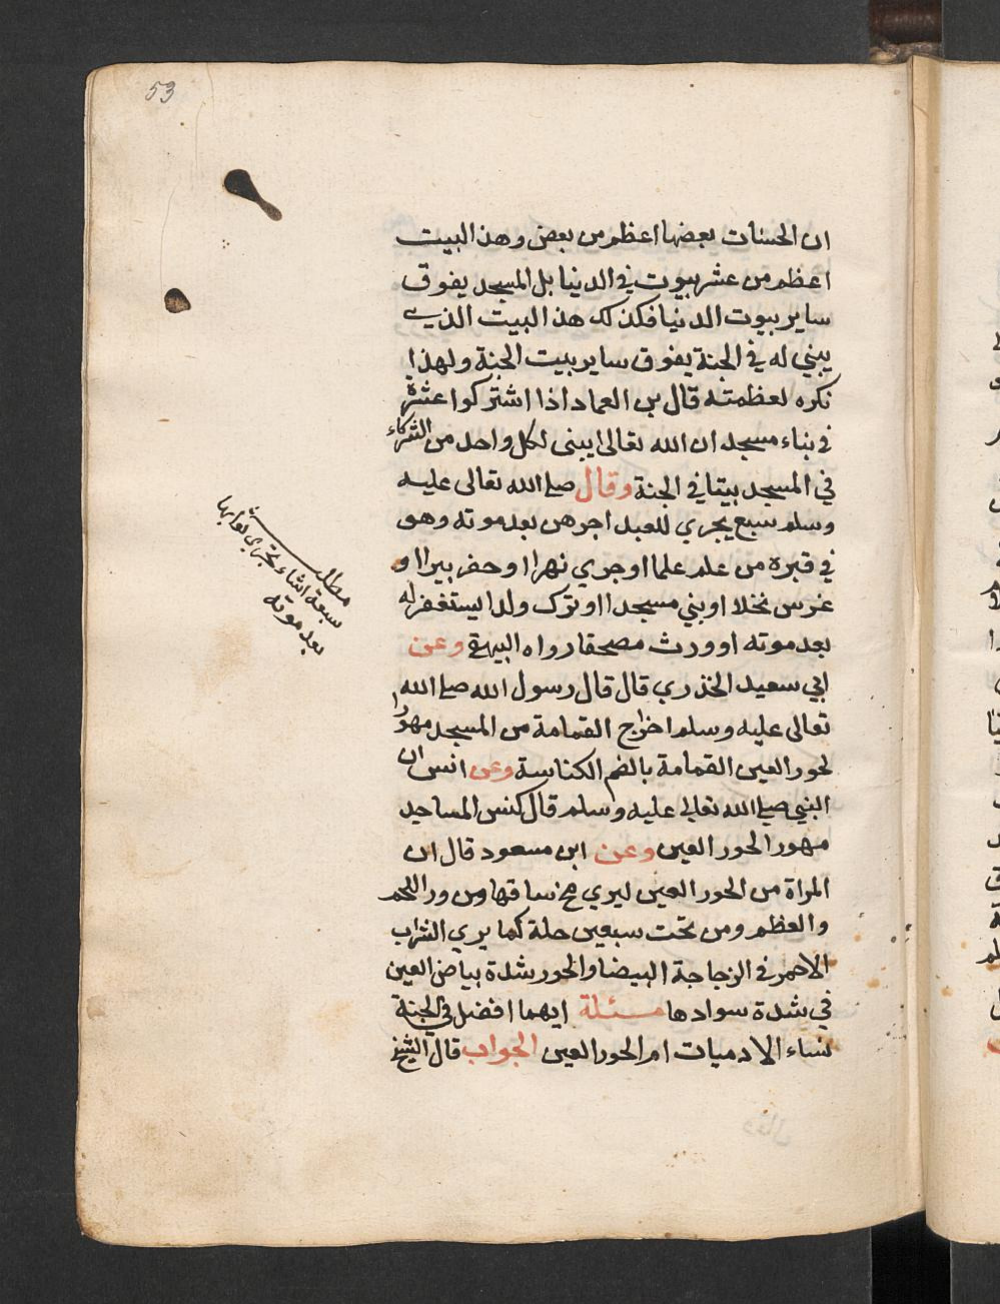 53
ان الحسنات بعضها اعظم من بعض وهذ البيت
اعظم من عشر بيوت في الدنيا بل المسجد يفوق
ساير بيوت الدنيا فكذلك هذ البيت الذي
يبني له في الجنة يفوق ساير بيت الجنة ولهذا
نكره لعظمته قال بن العماد اذا اشتركوا عشرة
في بناء مسجد ان الله تعالى يبنى لكل واحد من الشركاء
في المسجد بيتا في الجنة وقال صلى الله تعالى عليه
وسلم سبع يجري للعبد اجرهن بعد موته وهو
في قبره من علم علما او جري نهرا او حفر بيرا او
غرس نخلا او بني مسجدا او ترك ولدا يستغفر له
بعد موته او ورث مصحفا رواه البيهقي وعن
ابي سعيد الخذري قال قال رسول الله صلى الله
تعالى عليه وسلم اخراج القمامة من المسجد مهورا
لحور العين القمامة بالضم الكناسة وعن انس ان
النبي صلى الله تعالى عليه وسلم قال كنس المساجد
مهور الحور العين وعن ابن مسعود قال ان
المراة من الحور العين ليري مخ ساقها من ورا اللحم
والعظم ومن تحت سبعين حلة كما يري الشراب
الاحمر في الزجاجة البيضا والحور شدة بياض العين
في شدة سوادها مسئلة ايهما افضل في الجنة
نساء الادميات ام الحور العين الجواب قال الشيخ
مطلب
سبعة اشاء تجري ثوابها
بعد موته